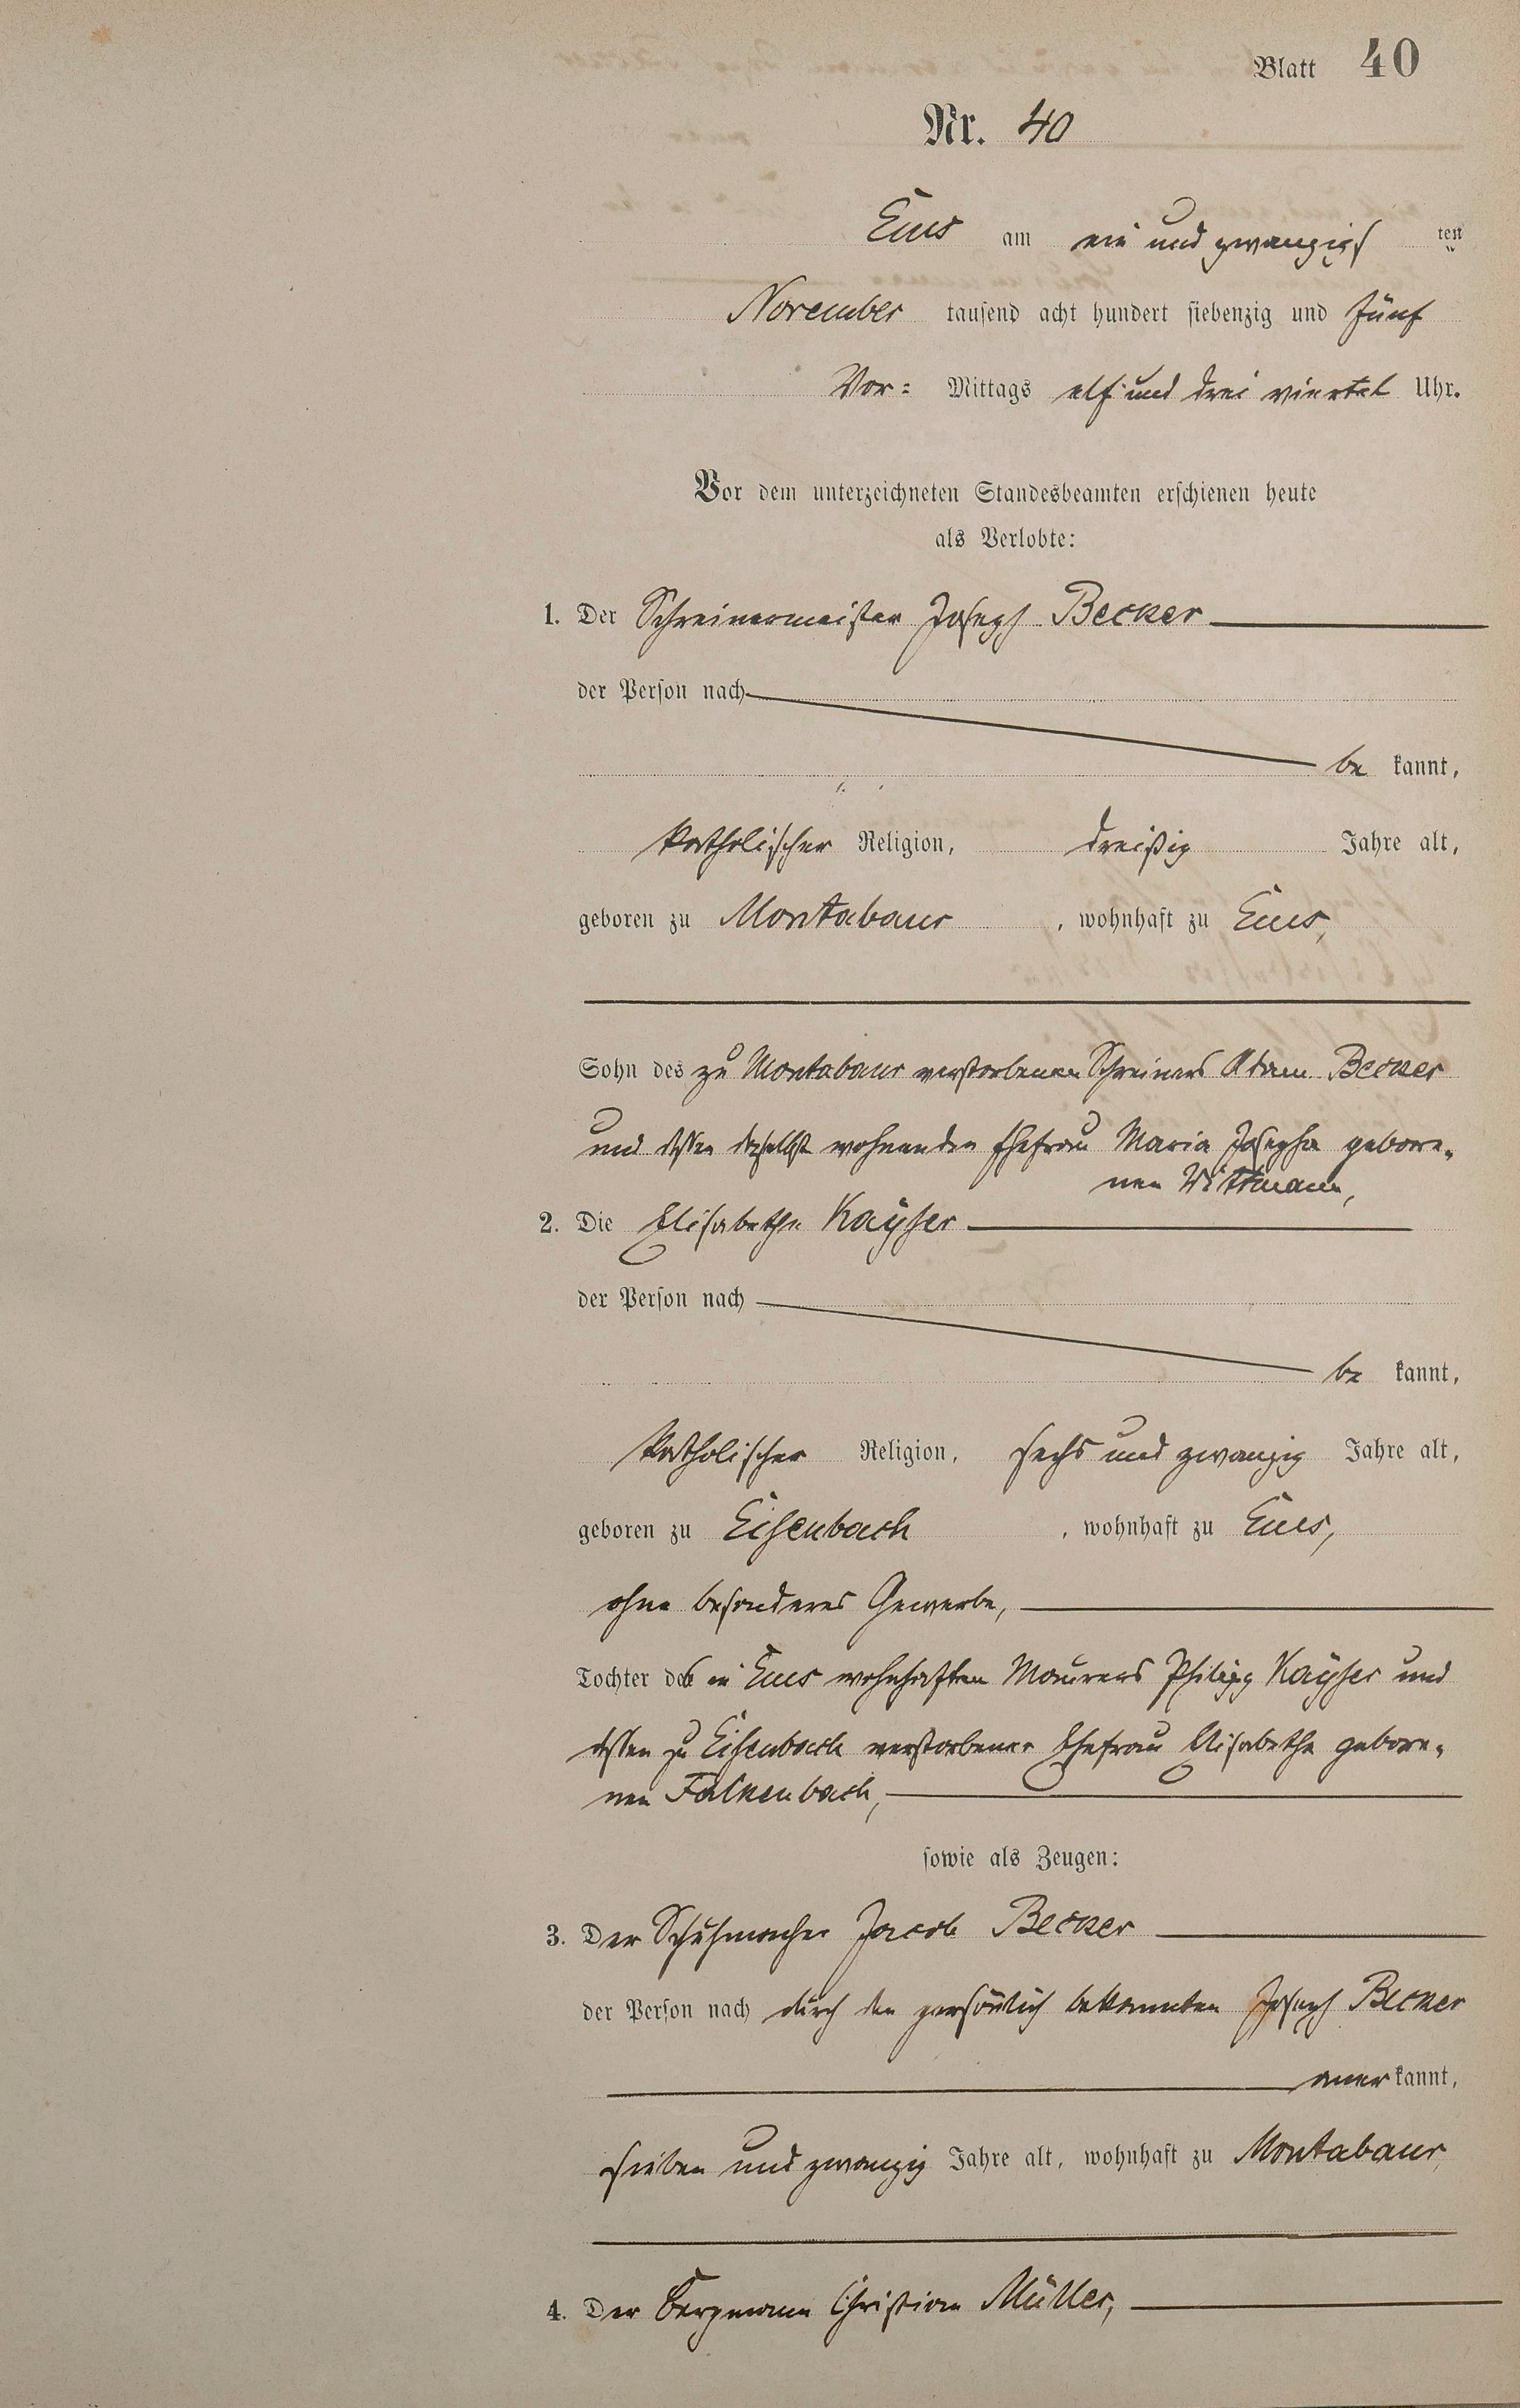 Blatt 40
Nr. 40
Ems am ein und zwanzigs ten
November tausend acht hundert siebenzig und fünf
Vor= Mittags elf und drei viertel Uhr.
Vor dem unterzeichneten Standesbeamten erschienen heute
als Verlobte:
1. Der Schreinermeister Joseph Becker
der Person nach
be kannt,
katholischer Religion, dreißig Jahre alt,
geboren zu Montabaur, wohnhaft zu Ems,
Sohn des zu Montabaur verstorbenen Schreiners Adam Becker
und dessen daselbst wohnenden Ehefrau Maria Josepha gebore-
nen Wittmann,
2. Die Elisabetha Kaÿser
der Person nach
be kannt,
katholischer Religion, sechs und zwanzig Jahre alt,
geboren zu Eisenbach, wohnhaft zu Ems,
ohne besonderes Gewerbe,
Tochter des in Ems wohnhaften Maurers Philipp Kaÿser und
dessen zu Eisenbach verstorbener Ehefrau Elisabetha gebore-
nen Falkenbach,
sowie als Zeugen:
3. Der Schuhmacher Jacob Becker
der Person nach durch den persönlich bekannten Joseph Becker
aner kannt,
sieben und zwanzig Jahre alt, wohnhaft zu Montabaur,
4. Der Bergmann Christian Müller,